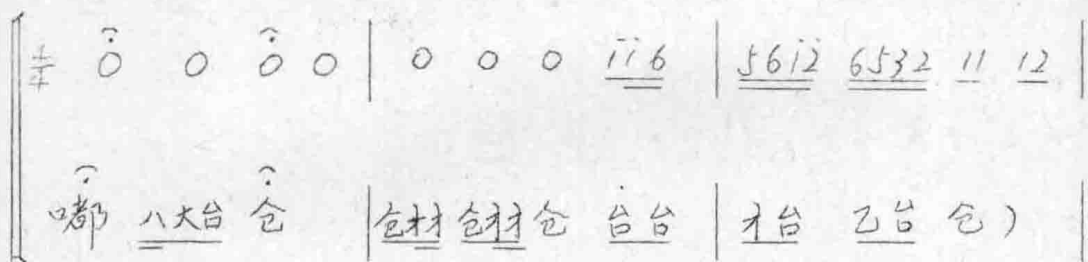 4/4 0 0 0 0 | 0 0 0 i̇i̇6 | 56i̇2̇ 6532 11 12 |
嘟 八大台 仓 | 仓才才 仓才才 仓 台台 | 才台 乙台 仓) |